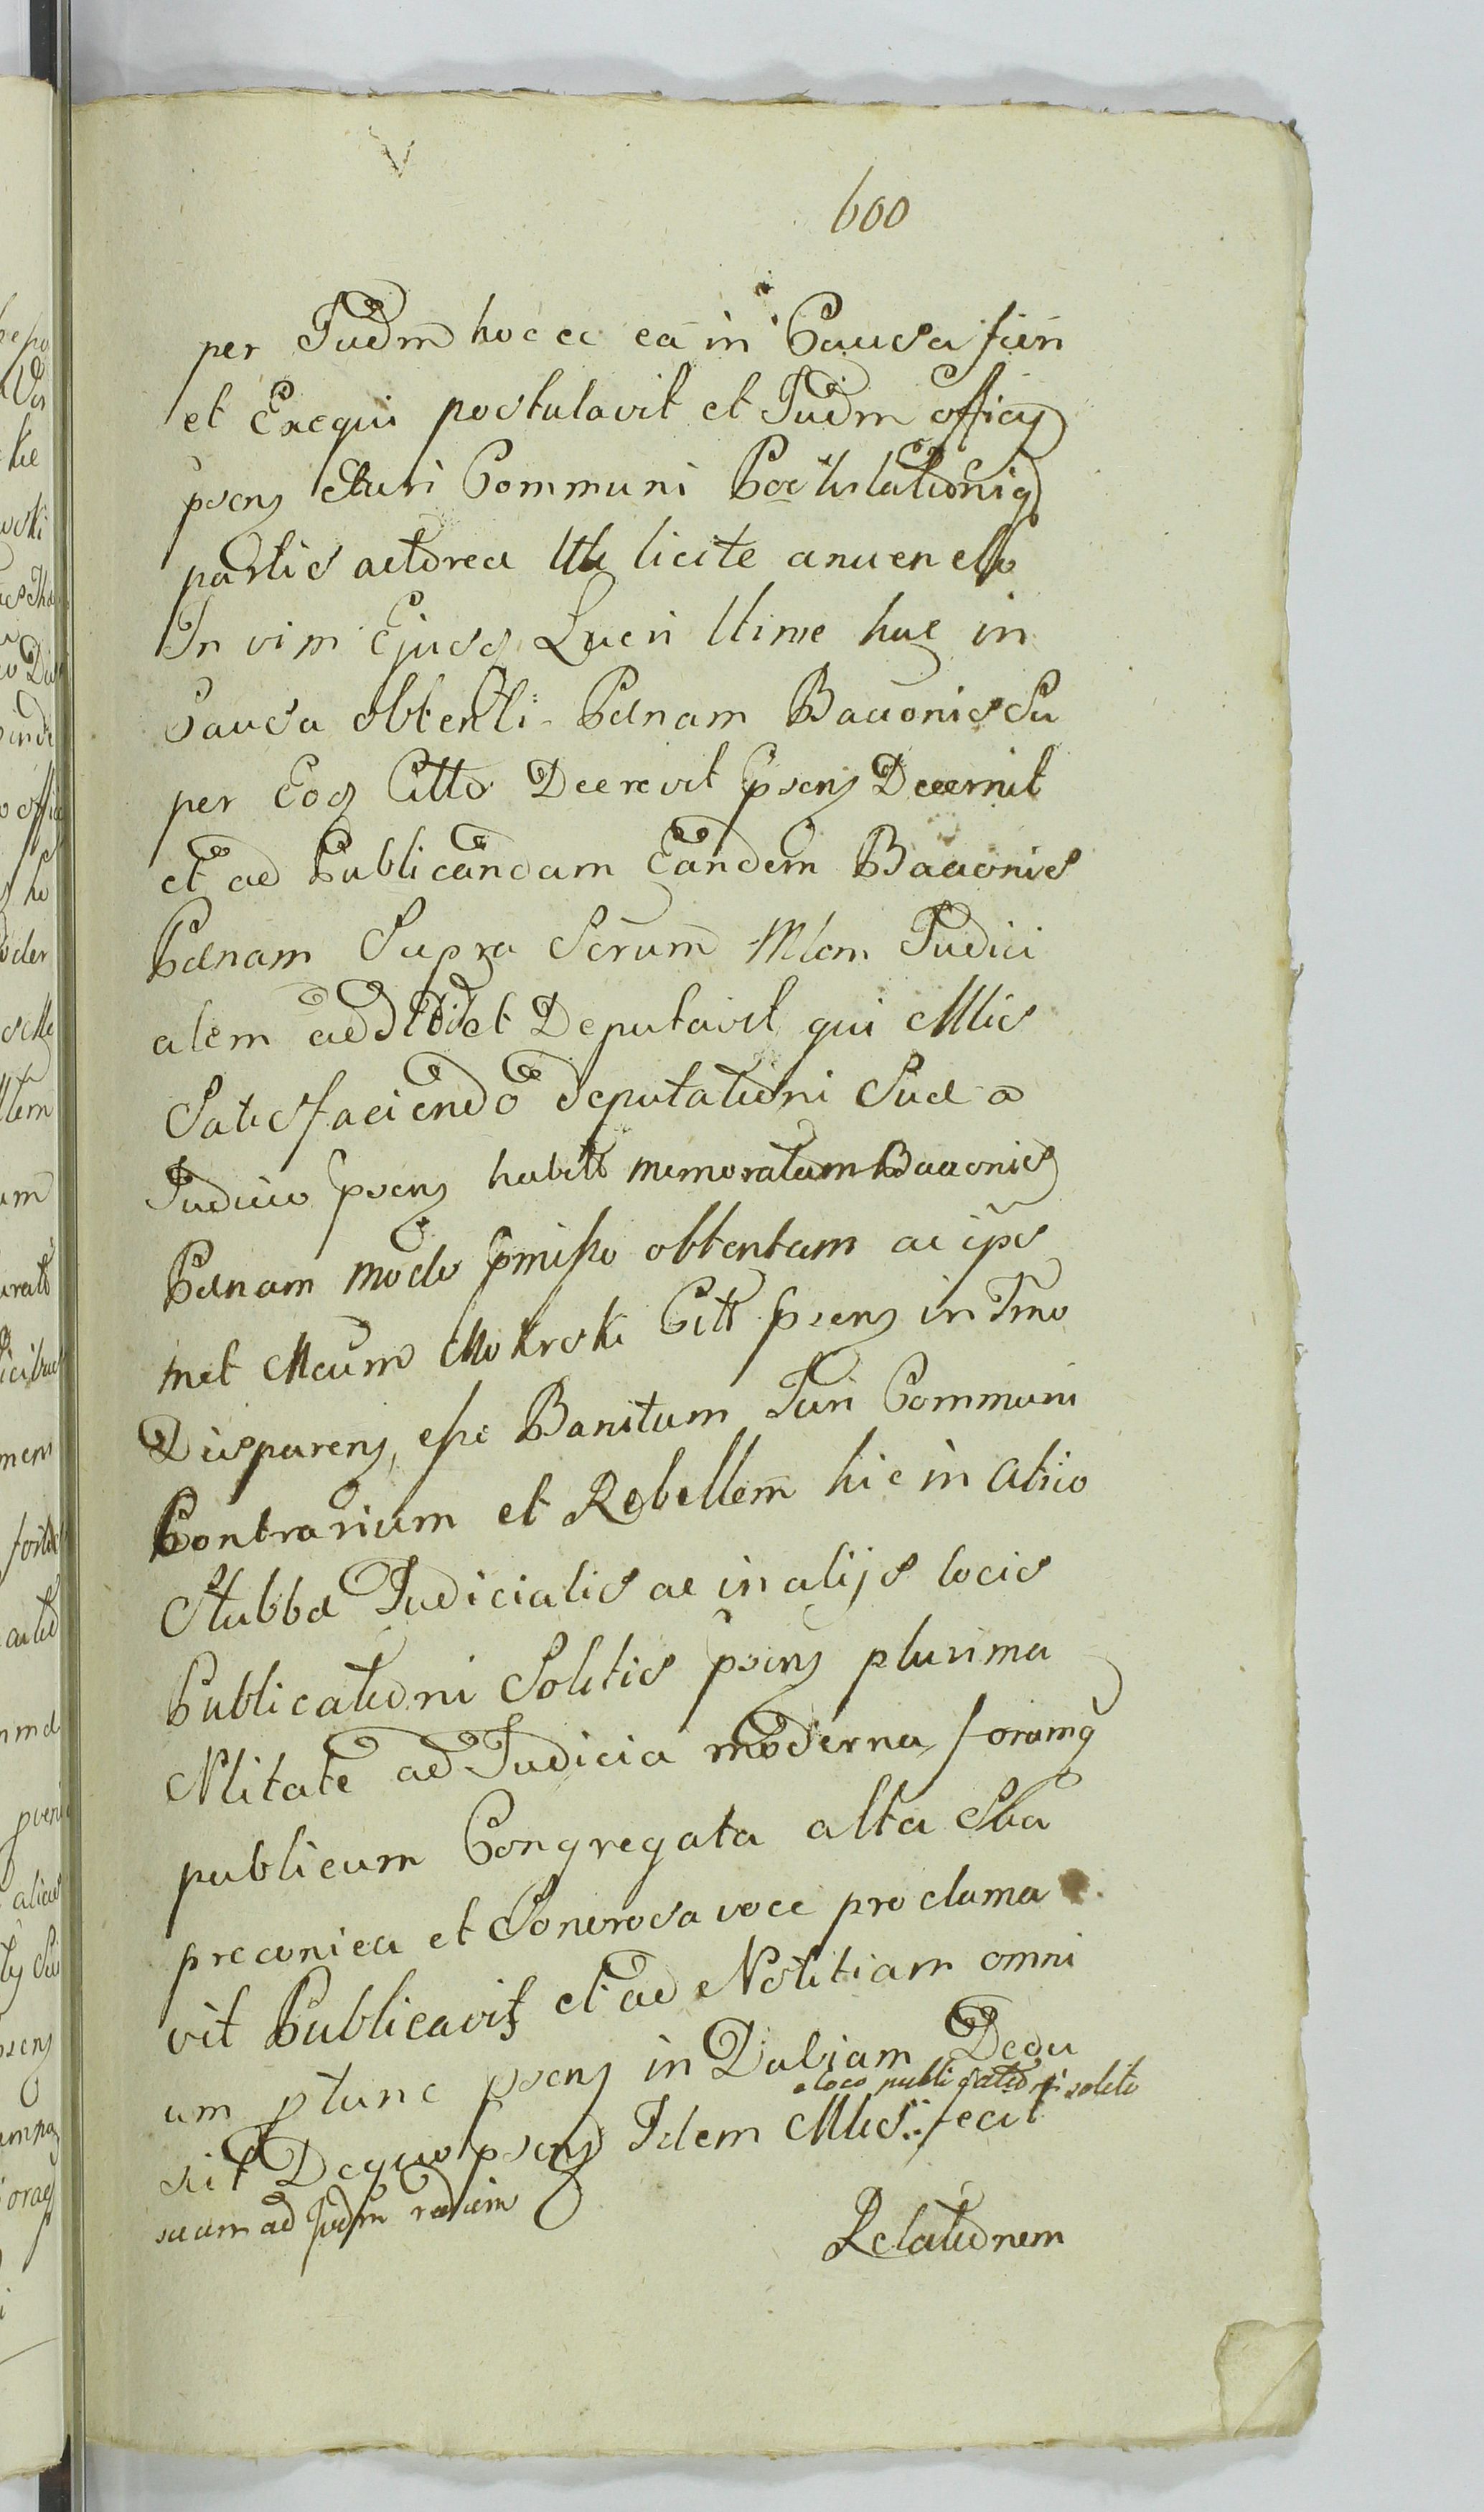 600
per Judm hocce ea in Causa fieri
et Exequi postulavit et Judm officij
psens Juri Communi Postulationiq
partis actorea Utt licite annuendo
In vim Ejusq Lucri ltime huc in
Causa obtenti Pænam Bannonis Su
per Eoq Citto Decrevit psens Decernit
et ad Publicandam Eandem Bannonis
Pænam Supra Scrum Mlem Judici
alem addidit et Deputavit qui Mlis
Satisfaciendo deputationi Suæ a
Judicio psens habitt memoratam Bannonis
Pænam modo pmisso obtentam ac ips
met Mcum Mokrski Citt psens in Tmo
Disparens, esse Banitum Juri Communi
Contrarium et Rebellem hic in Atrio
Stubbæ Judicialis ac in alijs locis
Publicationi Solitis psens plurima
Nlitate ad Judicia moderna forumq
publicum Congregata alta Sua
preconica et Sonorosa voce proclama
vit Publicavit et ad Notitiam omni
um ptunc psens in Dubiam Dedu
a loco publicationi solito
xit Dequo psens Idem Mlis fecit
suam ad Judm rediens
Relationem